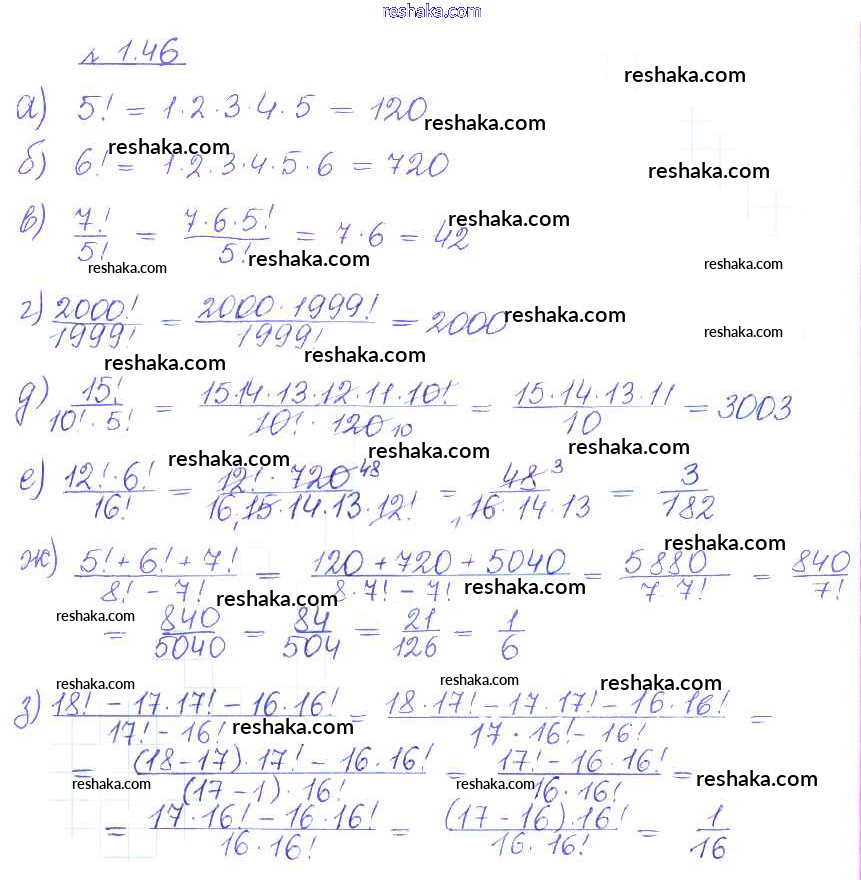 reshaka.com
№ 1.46
reshaka.com
а) 5! = 1·2·3·4·5 = 120
reshaka.com
reshaka.com
б) 6! = 1·2·3·4·5·6 = 720
reshaka.com
в) 7!/5! = 7·6·5!/5! = 7·6 = 42
reshaka.com
reshaka.com
reshaka.com
reshaka.com
г) 2000!/1999! = 2000·1999!/1999! = 2000
reshaka.com
reshaka.com
reshaka.com
reshaka.com
д) 15!/10!·5! = 15·14·13·12·11·10!/10!·120 10 = 15·14·13·11/10 = 3003
reshaka.com
reshaka.com
reshaka.com
е) 12!·6!/16! = 12!·720 48/16·15·14·13·12! = 48 3/16·14·13 = 3/182
reshaka.com
ж) 5!+6!+7!/8!-7! = 120+720+5040/8·7!-7! = 5880/7·7! = 840/7!
reshaka.com
reshaka.com
reshaka.com
= 840/5040 = 84/504 = 21/126 = 1/6
reshaka.com
reshaka.com
reshaka.com
з) 18!-17·17!-16·16!/17!-16! = 18·17!-17·17!-16·16!/17·16!-16! =
reshaka.com
= (18-17)·17!-16·16!/(17-1)·16! = 17!-16·16!/16·16! =
reshaka.com
reshaka.com
reshaka.com
= 17·16!-16·16!/16·16! = (17-16)·16!/16·16! = 1/16